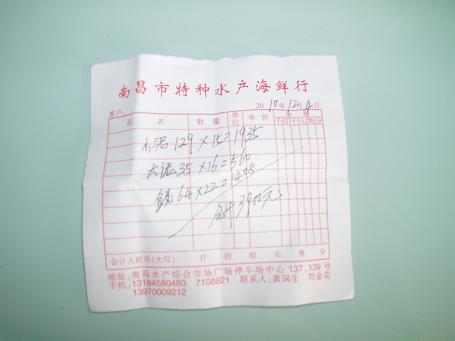 南昌市特种水产海鲜行
客户: 2010年12月4日
品 名 数量 单位 单价 金额
千百十元角分
129×15=1935
35×16=560
64×22=1408
合计3900元
合计人民币(大写) 仟 佰 拾 元 角 分
地址:南昌水产综合市场广场停车场中心137,139号
手机:13184580480 7108821 联系人:黄国生 刘金花
13970009212